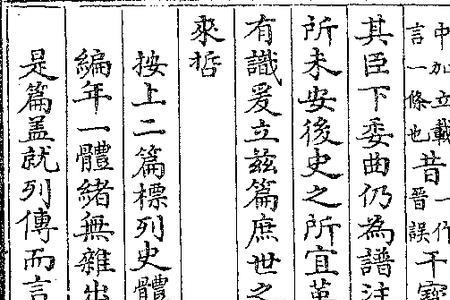 中加立載言一條也昔一作晉誤干寶
其臣下委曲仍為譜注
所未安後史之所宜革
有識爰立茲篇庶世之
來哲
按上二篇標列史體
編年一體緒無雜出
是篇盖就列傳而言